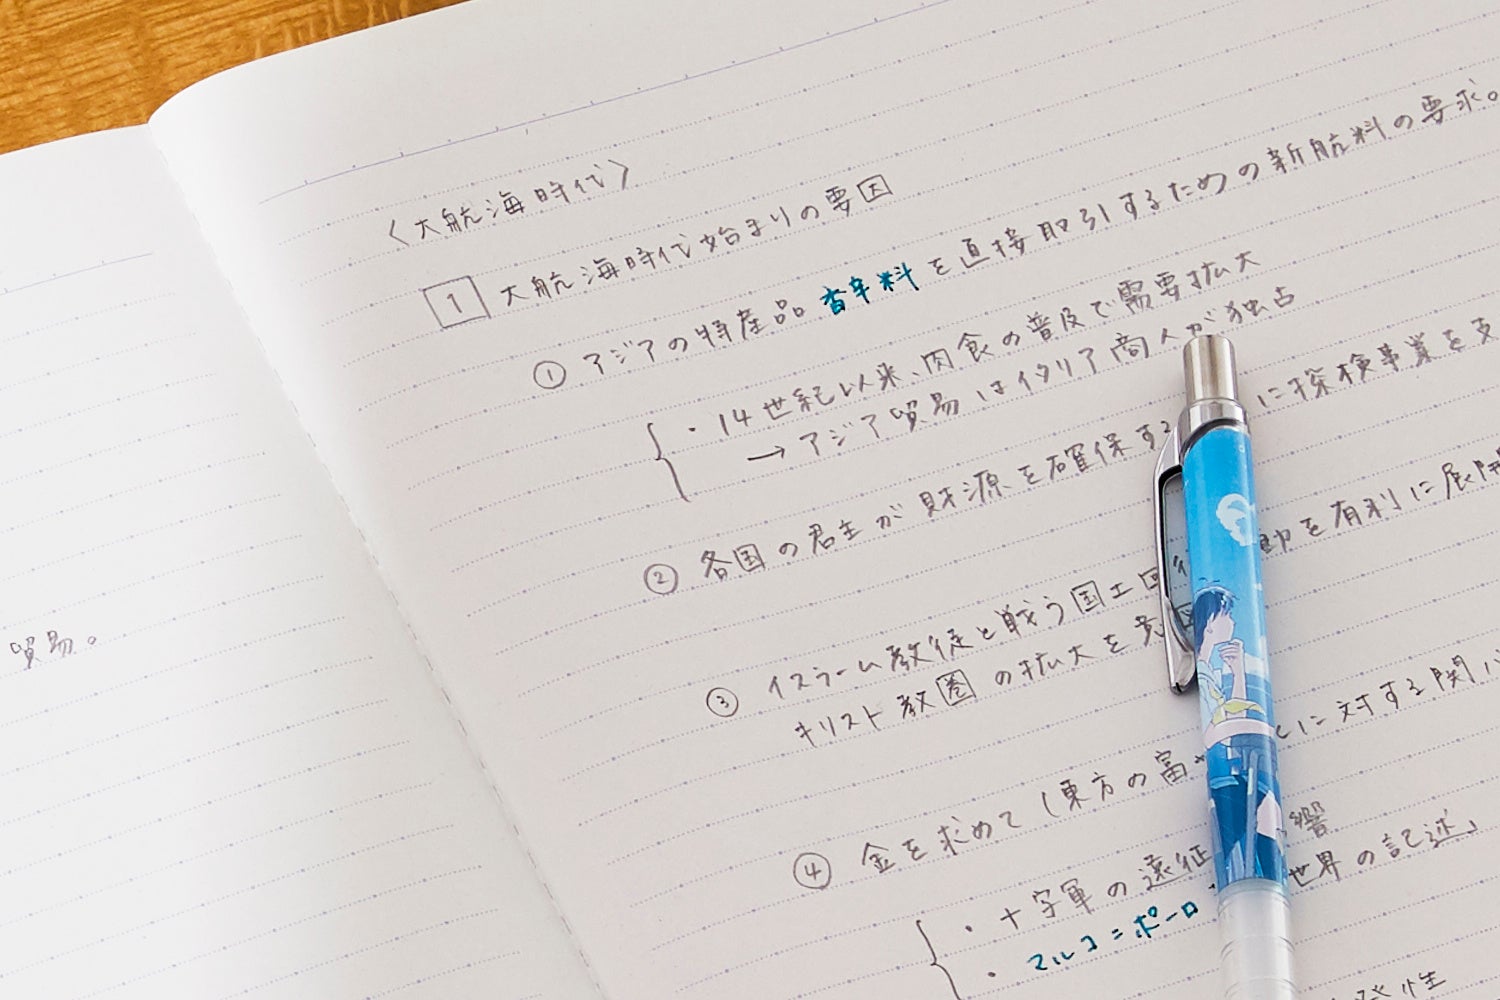 貿易。
〈大航海時代〉
1 大航海時代始まりの要因
① アジアの特産品 香辛料 を直接取引するための新航料の要求。
・14世紀以来、肉食の普及で需要拡大
→アジア貿易はイタリア商人が独占
② 各国の君主が財源を確保する に探検事業を支
③ イスラーム教徒と戦う国土回復 動を有利に展開
キリスト教圏の拡大を意図
④ 金を求めて(東方の富 に対する関心
・十字軍の遠征 響
・マルコ=ポーロ 世界の記述」
性